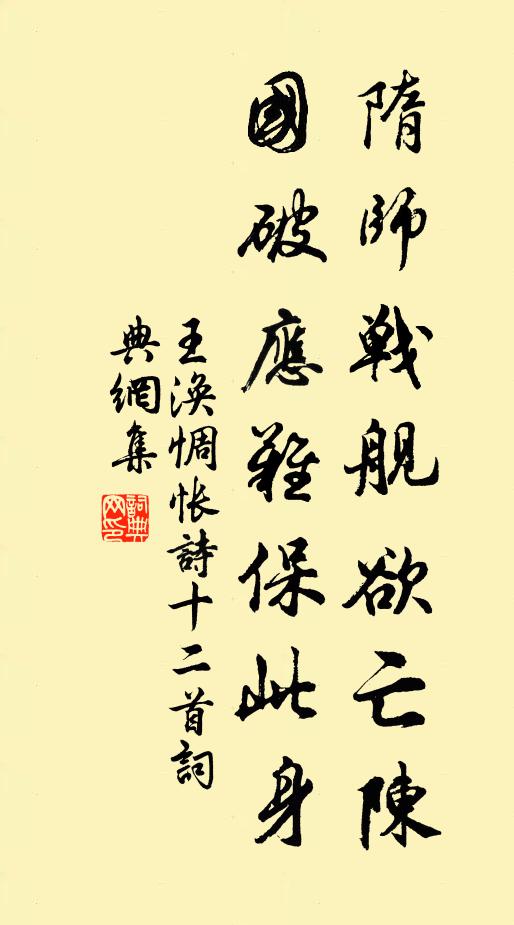 隋師戰舰欲亡陳
國破應難保此身
王渙惆怅詩十二首詞
典網集
詞典
网印